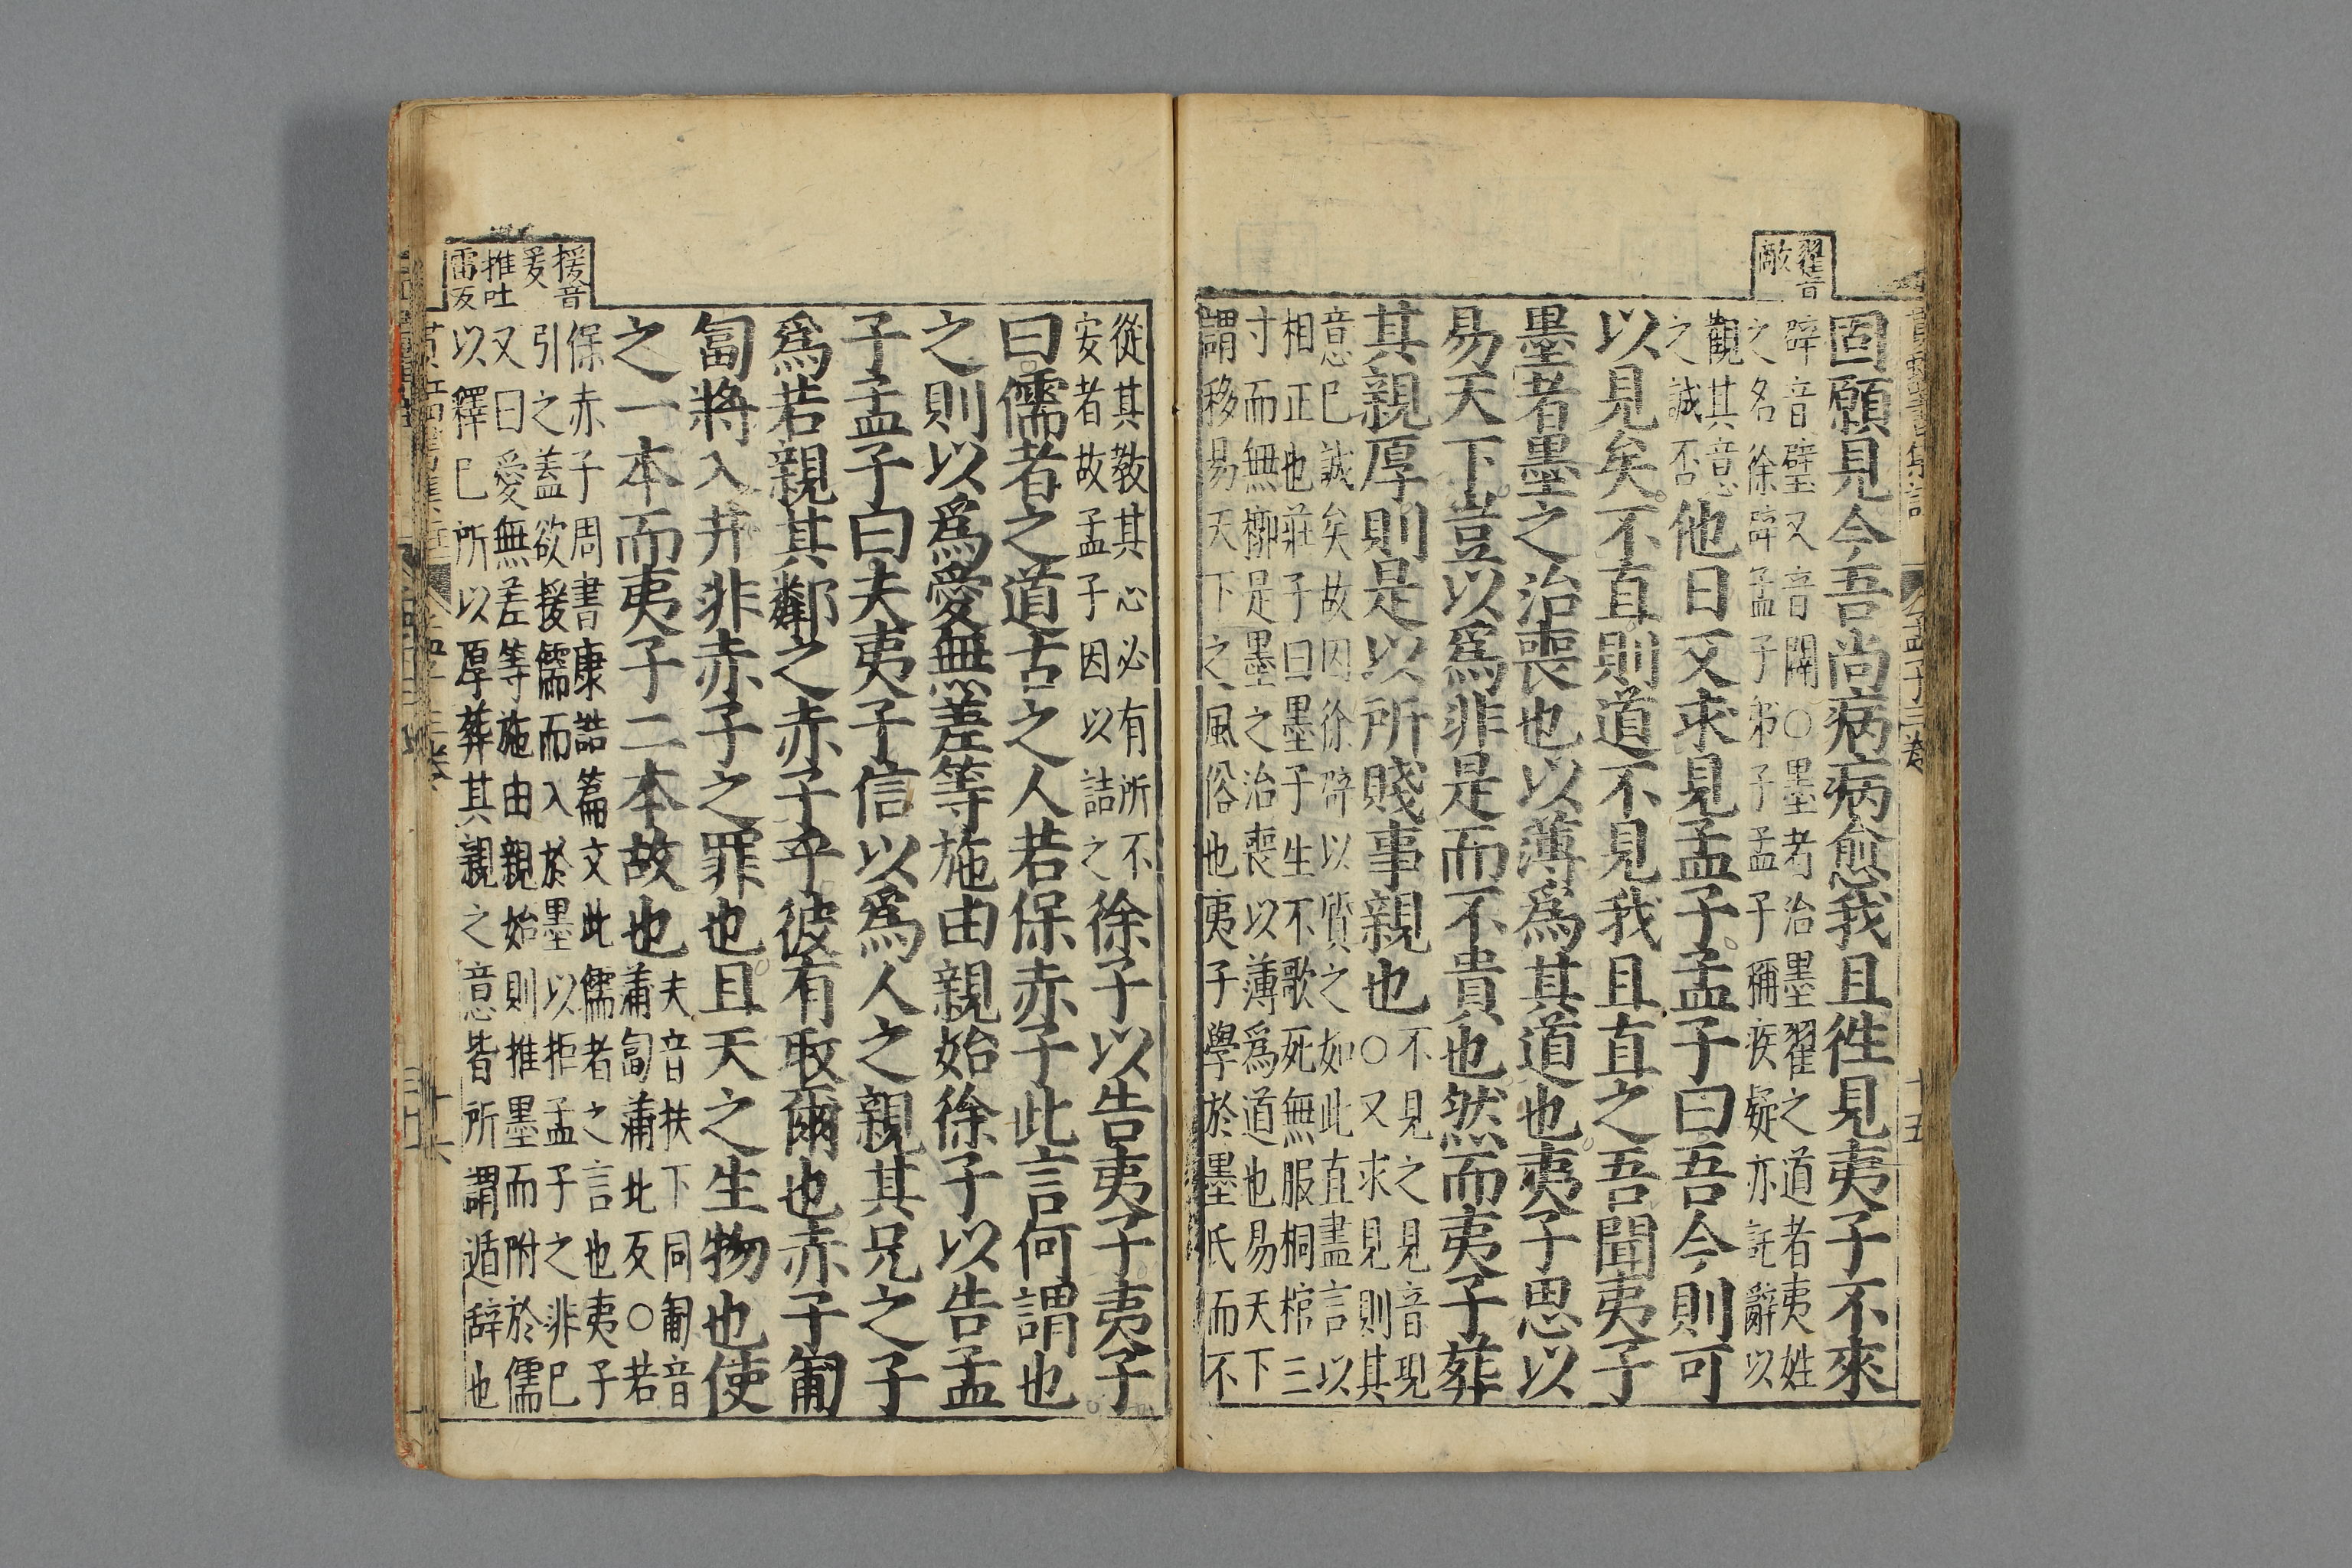 翟音
敵
固願見今吾尚病病愈我且徃見夷子不來
辟音壁又音闢○墨者治墨翟之道者夷姓
之名徐辟孟子弟子孟子稱疾疑亦託辭以
觀其意
之誠否
他日又求見孟子孟子曰吾今則可
以見矣不直則道不見我且直之吾聞夷子
墨者墨之治喪也以薄爲其道也夷子思以
易天下豈以爲非是而不貴也然而夷子葬
其親厚則是以所賤事親也
不見之見音現
○又求見則其
意已誠矣故因徐辟以質之如此直盡言以
相正也莊子曰墨子生不歌死無服桐棺三
寸而無槨是墨之治喪以薄爲道也易天下
謂移易天下之風俗也夷子學於墨氏而不
從其敎其心必有所不
安者故孟子因以詰之
徐子以告夷子夷子
曰儒者之道古之人若保赤子此言何謂也
之則以爲愛無差等施由親始徐子以告孟
子孟子曰夫夷子信以爲人之親其兄之子
爲若親其鄰之赤子乎彼有取爾也赤子匍
匐將入井非赤子之罪也且天之生物也使
之一本而夷子二本故也
夫音扶下同匍音
蒲匐蒲北反○若
保赤子周書康誥篇文此儒者之言也夷子
引之蓋欲援儒而入於墨以拒孟子之非已
又曰愛無差等施由親始則推墨而附於儒
以釋已所以厚葬其親之意皆所謂遁辭也
援音
爰
推吐
雷反